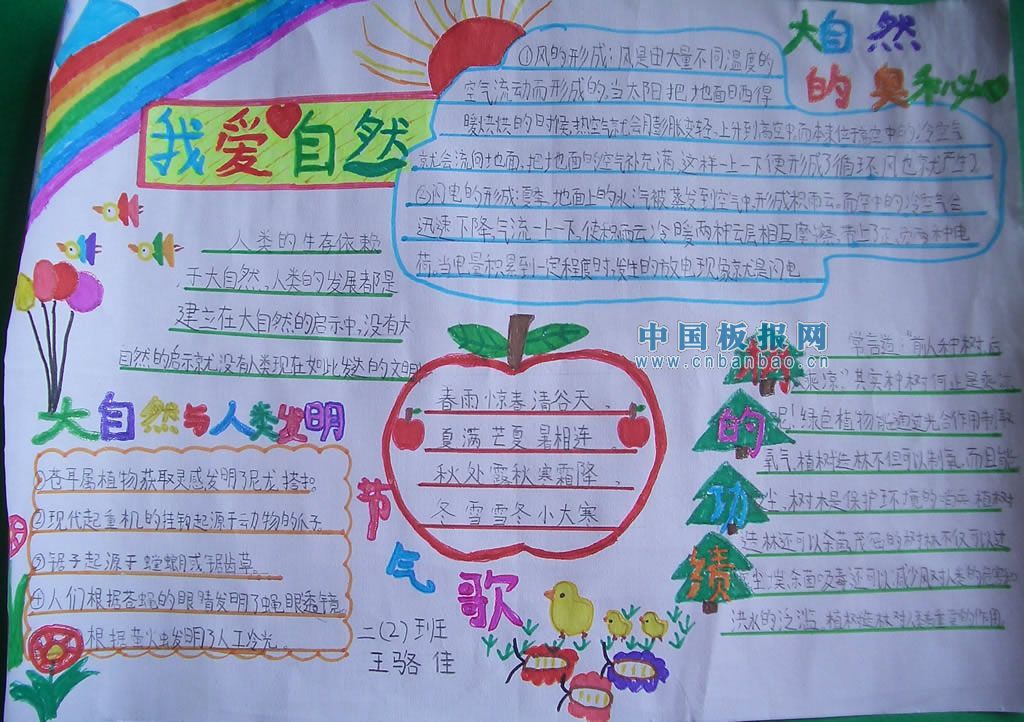 我爱自然
大自然
的奥秘
①风的形成：风是由大量不同温度的
空气流动而形成的，当太阳把地面晒得
暖烘烘的时候，热空气就会膨胀变轻，上升到高空中，而本来位于高空中的冷空气
就会流向地面，把地面的空气补充满，这样一上一下便形成了循环，风也就产生了
②闪电的形成：雪季，地面上的水汽被蒸发到空气中，形成积雨云，而空中的冷空气会
迅速下降，气流一上一下，使积雨云冷暖两种云层相互摩擦，带上了正负两种电
荷，当电量积累到一定程度时，发生的放电现象就是闪电
人类的生存依赖
于大自然，人类的发展都是
建立在大自然的启示中，没有大
自然的启示就没有人类现在如此发达的文明
中国板报网
www.cnbanbao.cn
大自然与人类发明
①苍耳属植物获取灵感发明了尼龙搭扣。
②现代起重机的挂钩起源于动物的爪子
③锯子起源于螳螂或锯齿草。
④人们根据苍蝇的眼睛发明了蝇眼透镜
根据萤火虫发明了人工冷光。
节气歌
春雨惊春清谷天，
夏满芒夏暑相连
秋处露秋寒霜降，
冬雪雪冬小大寒
二(2)班
王骆佳
树的功绩
常言道：“前人种树后
人乘凉”其实种树何止是乘凉
呢！绿色植物能通过光合作用制取
氧气，植树造林不但可以制氧，而且能
尘，树木是保护环境的卫士，植树
造林还可以杀菌，茂密的树林不仅可以过
尘埃，杀菌吸毒，还可以减少风对人类的危害和
洪水的泛滥，植树造林对人类
的作用